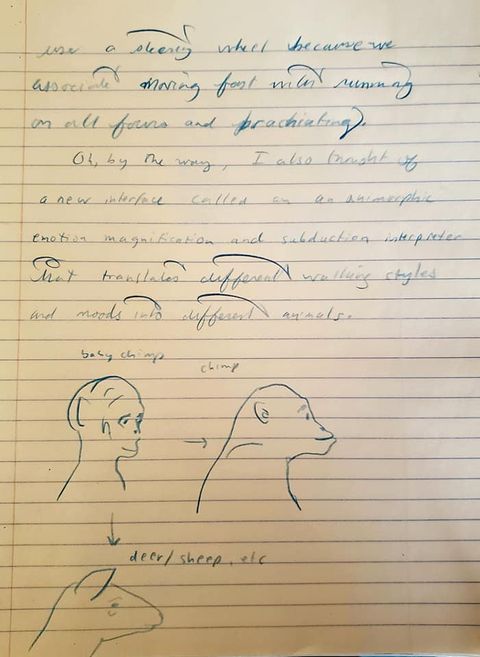 use a steering wheel because we
associate moving fast with running
on all fours and brachiating).
Oh, by the way, I also thought of
a new interface called an an animorphic
emotion magnification and subduction interpreter
that translates different walking styles
and moods into different animals.
baby chimp
chimp
deer/sheep, etc